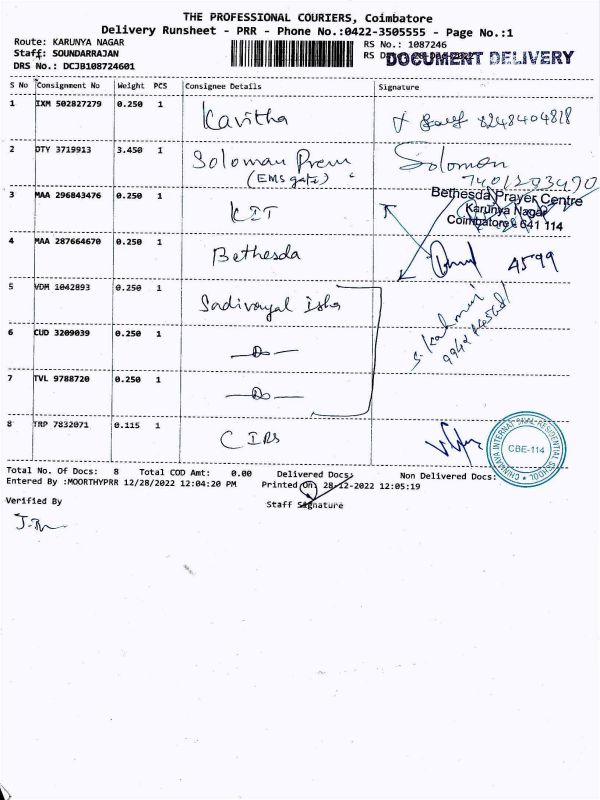 THE PROFESSIONAL COURIERS, Coimbatore
Delivery Runsheet - PRR - Phone No.:0422-3505555 - Page No.:1
Route: KARUNYA NAGAR
Staff: SOUNDARRAJAN
DRS No.: DCJB108724601
RS No.: 1087246
RS
DOCUMENT DELIVERY
S No Consignment No Weight PCS Consignee Details Signature
1 IXM 502827279 0.250 1 Kavitha 8248404818
2 DTY 3719913 3.450 1 Soloman Prem Solomon
(EMS gate) 7401203490
Bethesda Prayer Centre
Karunya Nagar
Coimbatore - 641 114
3 MAA 296843476 0.250 1 KIT
4 MAA 287664670 0.250 1 Bethesda 4599
5 VDM 1042893 0.250 1 Sadivayal Isha
6 CUD 3209039 0.250 1 -Do-
7 TVL 9788720 0.250 1 -Do-
8 TRP 7832071 0.115 1 CIRS
CHINMAYA INTERNATIONAL RESIDENTIAL SCHOOL
CBE-114
Total No. Of Docs: 8 Total COD Amt: 0.00 Delivered Docs: Non Delivered Docs:
Entered By :MOORTHYPRR 12/28/2022 12:04:20 PM Printed On: 28-12-2022 12:05:19
Verified By Staff Signature